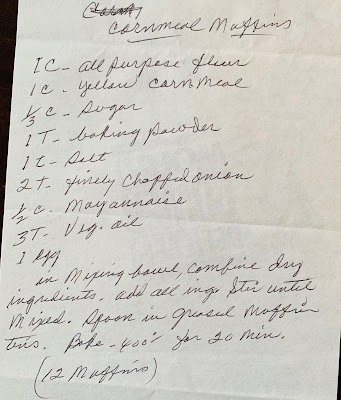 Cornmeal Muffins
1 C - all purpose flour
1 c - yellow cornmeal
1/3 c - sugar
1 T - baking powder
1 t - salt
2 T - finely chopped onion
1/2 c - mayannaise
3 T - Veg. oil
1 egg
in mixing bowl, combine dry
ingredients. add all ing. Stir until
mixed. Spoon in greased muffin
tins. Bake - 400° for 20 min.
(12 Muffins)